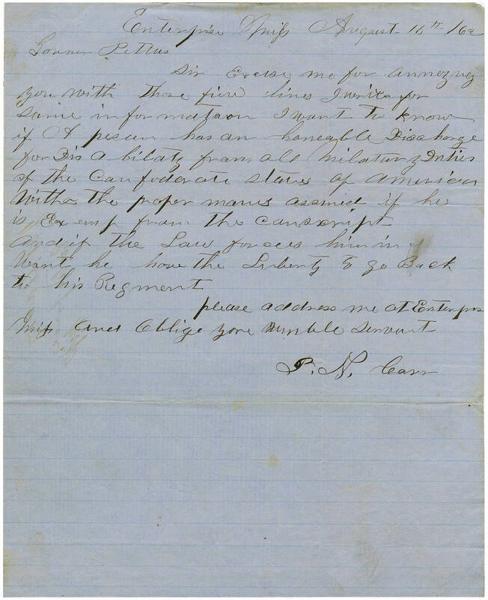 Enterprise Miss August 16th /62
Govner Pettus
Sir Excuse me for annoying
you with those fiew lines I write for
some information I want to know
if A pirson has an honeable Discharge
for Dis a bilaty from all milatary Duties
of the Confederate States of American
With the proper manes assined if he
is Exemp from the conscript
And if the Law forces him in
Wont he have the Liberty to go Back
to his Regment
please address me at Enterpris
Miss And Oblige yore Humble Servant
P. N. Carr